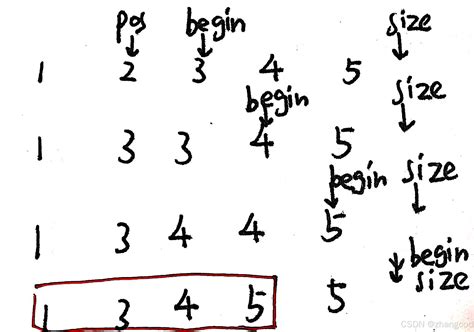 pos begin size
1 2 3 4 5
begin size
1 3 3 4 5
begin size
1 3 4 4 5
begin
size
1 3 4 5 5